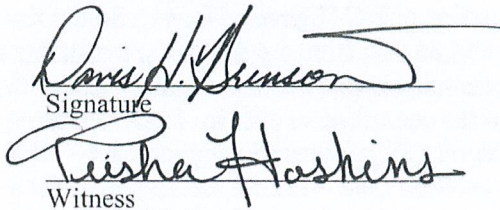 Davis H. Brunson
Signature
Teisha Hoskins
Witness